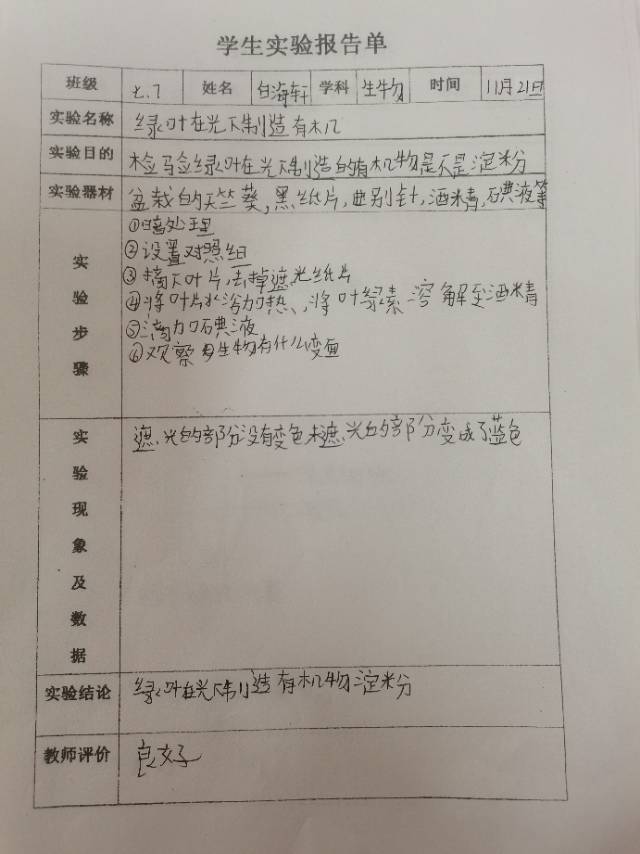 学生实验报告单
班级 七.7 姓名 白海轩 学科 生物 时间 11月21日
实验名称 绿叶在光下制造有机
实验目的 检验绿叶在光下制造的有机物是不是淀粉
实验器材 盆栽的天竺葵,黑纸片,曲别针,酒精,碘液等
实验步骤
①暗处理
②设置对照组
③摘下叶片,去掉遮光纸片
④将叶片水浴加热、将叶绿素溶解至酒精
⑤滴加碘液
⑥观察 生物有什么变色
实验现象及数据
遮光的部分没有变色未遮光的部分变成了蓝色
实验结论 绿叶在光下制造有机物淀粉
教师评价 良好